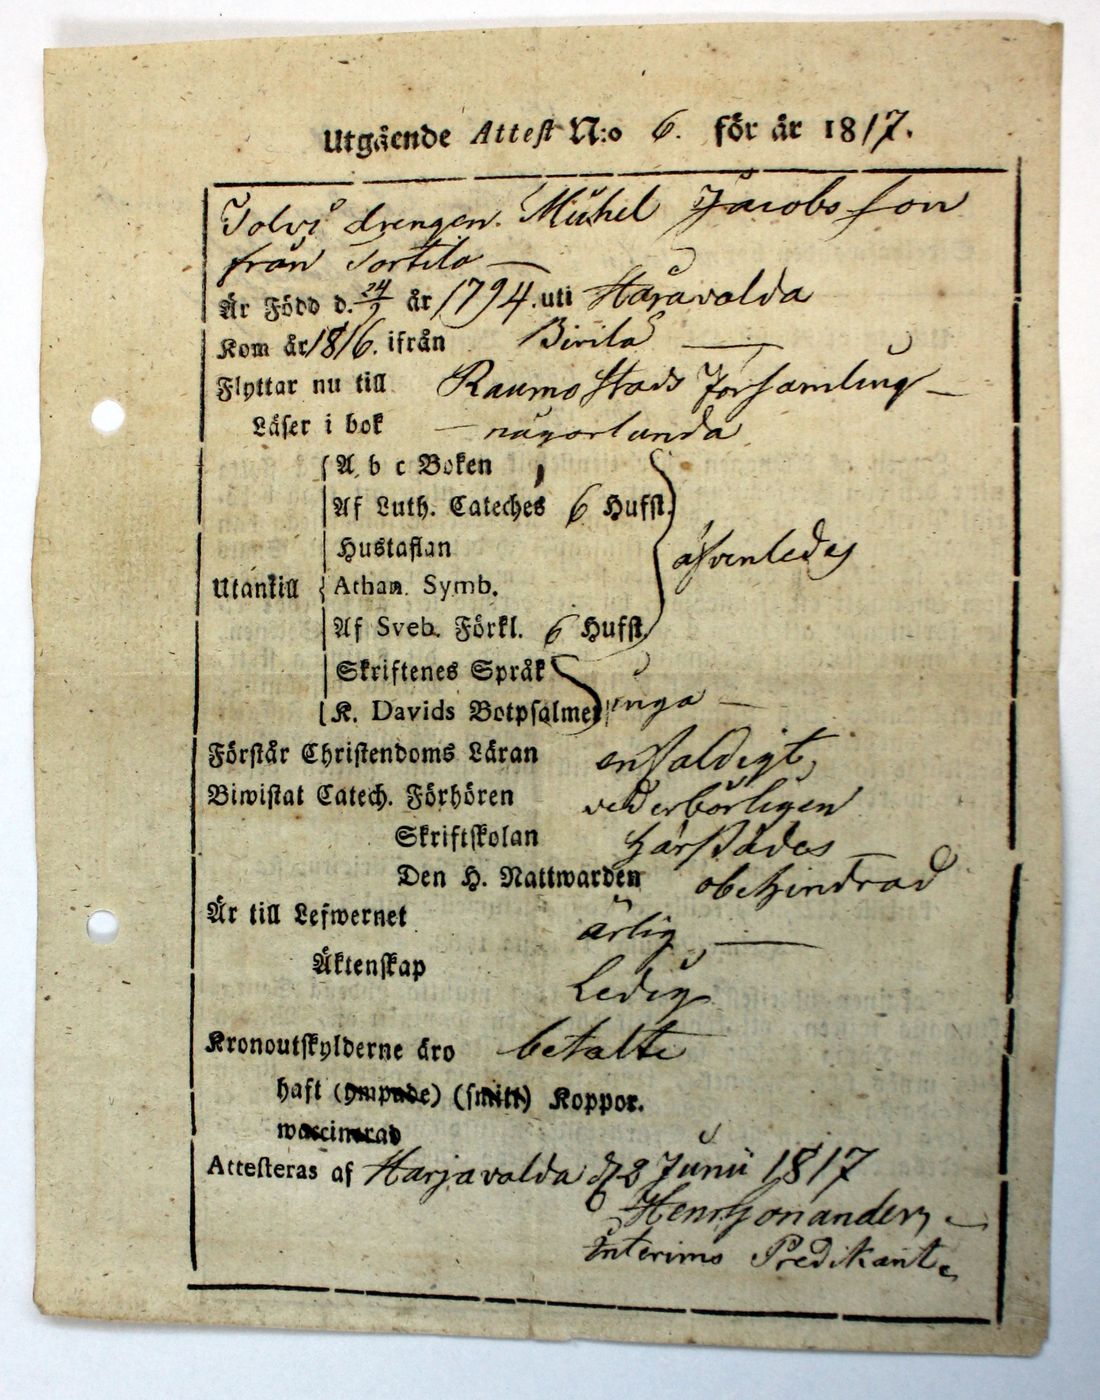 Utgående Attest N:o 6. för år 1817.
drengen Michel Jacobsson
från Tortila
Är Född d. 24/9 år 1794. uti Haravalda
Kom år 1816. ifrån Birila
Flyttar nu till Raumo Stads Församling
Läser i bok någorlunda
A b c Boken
Af Luth. Cateches 6 Hufst.
Hustaflan
äfvenledes
Utantill
Athan. Symb.
Af Sveb. Förkl. 6 Hufst.
Skriftenes Språk
K. Davids Botpsalmer inga
Förstår Christendoms Läran enfaldigt,
Biwistat Catech. Förhören vederbörligen
Skriftskolan härstädes
Den H. Nattwarden obehindrad
Är till Lefwernet ärlig
Äktenskap Ledig
Kronoutskylderne äro betalte
haft (ympade) (smitt) Koppor.
waccinerad
Attesteras af Harjavalda d 2 Junii 1817
Interims Predikant